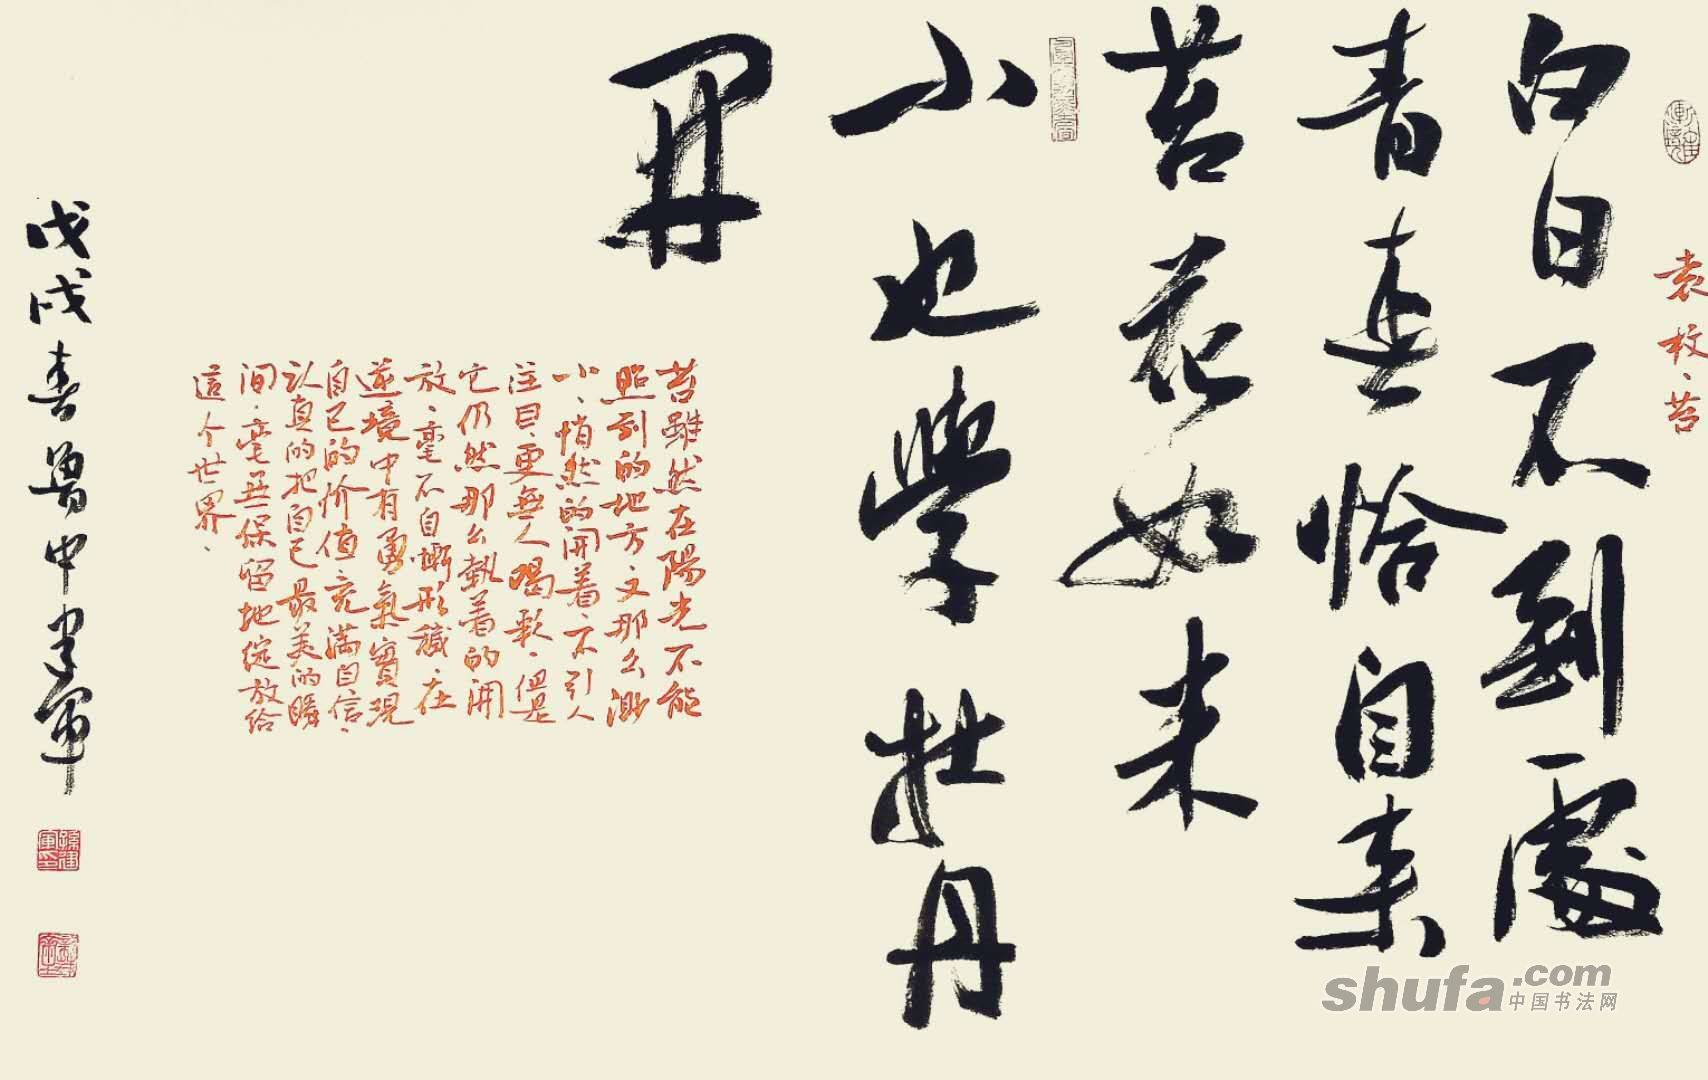 袁枚、苔
白日不到處
青春恰自来
苔花如米
小也學牡丹
開
苔雖然在陽光不能
照到的地方、又那么渺
小、悄然的開着、不引人
注目、更無人喝彩、但是
它仍然那么執着的開
放、毫不自慚形穢、在
逆境中有勇氣實現
自己的价值、充满自信、
认真的把自己最美的瞬
间、毫無保留地绽放给
這个世界、
戊戌春魯中建軍
shufa.com
中国书法网